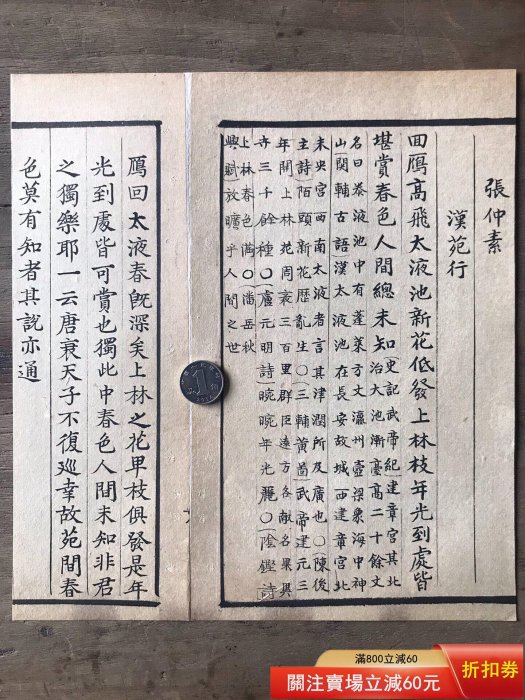 張仲素
漢苑行
回鴈高飛太液池新花低發上林枝年光到處皆
堪賞春色人間總未知
(史記武帝紀)建章宮其北
治大池漸臺高二十餘丈
名曰泰液池中有蓬萊方丈瀛州壺梁象海中神
山(關輔古語)漢太液池在長安故城西建章宮北
未央宮西南太液者言其津潤所及廣也〇(陳後
主詩)陌頭新花歷亂生〇(三輔黃圖)武帝建元三
年開上林苑周袤三百里群臣遠方各獻名果異
卉三千餘種〇(盧元明詩)晼晼年光麗〇(陰鏗詩)
上林春色滿〇(潘岳秋
興賦)放曠乎人間之世
鴈回太液春既深矣上林之花甲枝俱發是年
光到處皆可賞也獨此中春色人間未知非君
之獨樂耶一云唐衰天子不復巡幸故苑間春
色莫有知者其說亦通
1
滿800立減60
關注賣場立減60元
折扣券